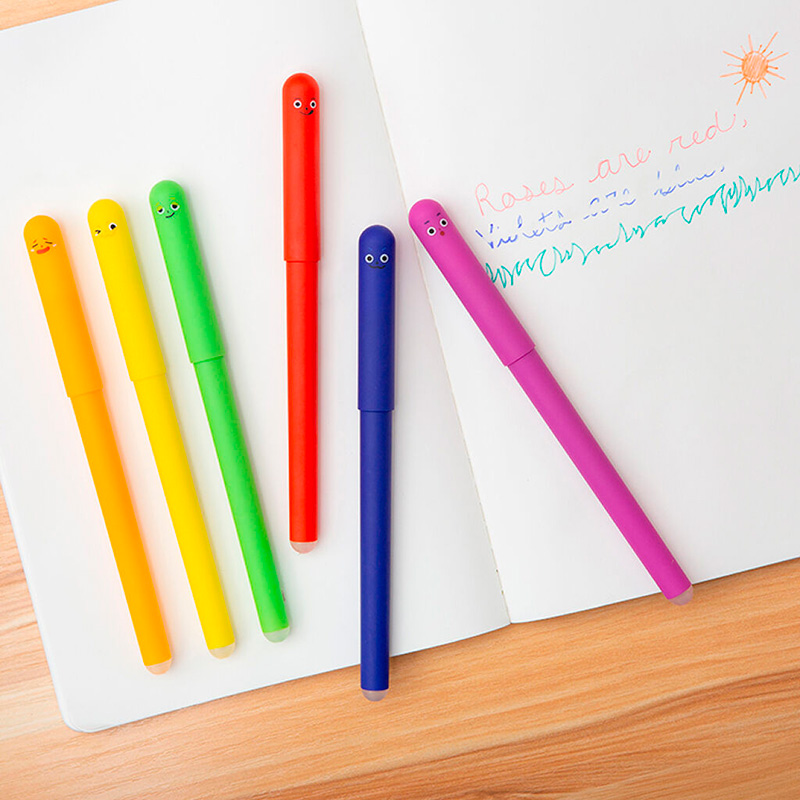 Roses are red,
Violets are blue,